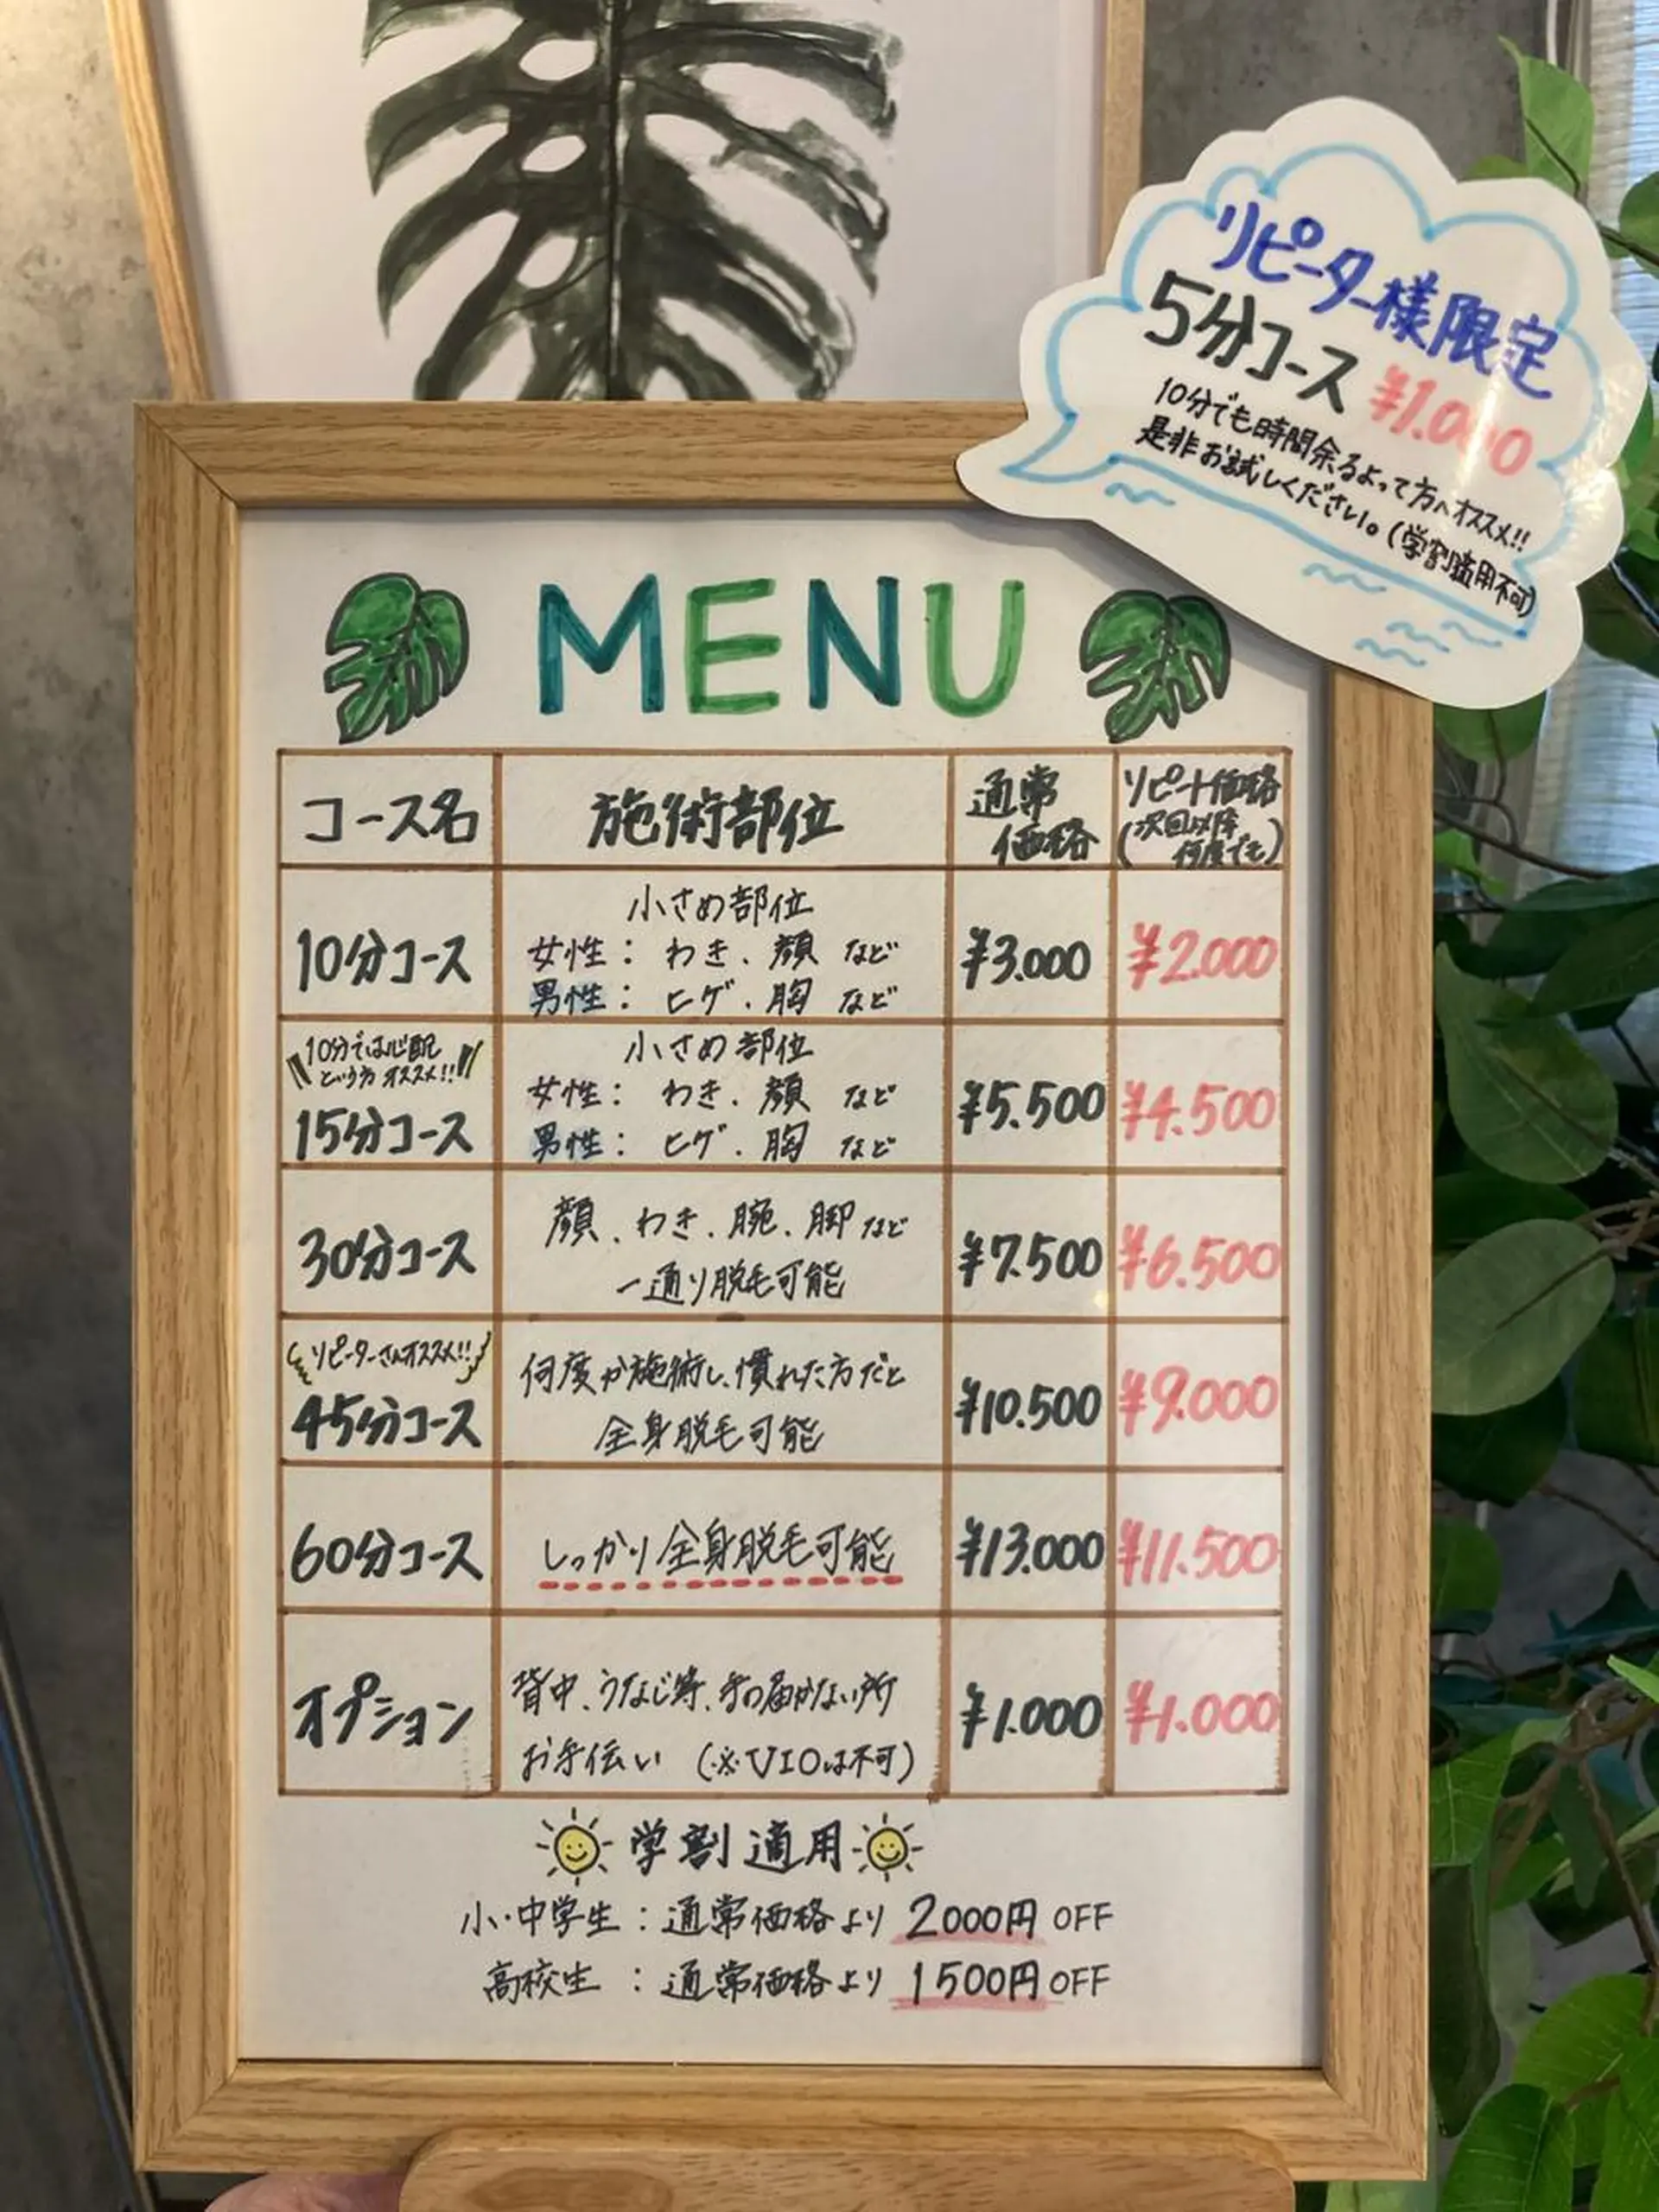 リピーター様限定
5分コース ¥1.000
10分でも時間余るよって方へオススメ!!
是非お試しください。(学割適用不可)
MENU
コース名 施術部位 通常価格 リピート価格(次回以降何度でも)
10分コース
小さめ部位
女性：わき、顔 など
男性：ヒゲ、胸 など
¥3.000 ¥2.000
10分では心配
という方 オススメ!!
15分コース
小さめ部位
女性：わき、顔 など
男性：ヒゲ、胸 など
¥5.500 ¥4.500
30分コース
顔、わき、腕、脚 など
一通り脱毛可能
¥7.500 ¥6.500
リピーターさんオススメ!!
45分コース
何度か施術し、慣れた方だと
全身脱毛可能
¥10.500 ¥9.000
60分コース
しっかり全身脱毛可能
¥13.000 ¥11.500
オプション
背中、うなじ等、手の届かない所
お手伝い (※VIOは不可)
¥1.000 ¥1.000
学割適用
小・中学生：通常価格より 2000円 OFF
高校生：通常価格より 1500円 OFF